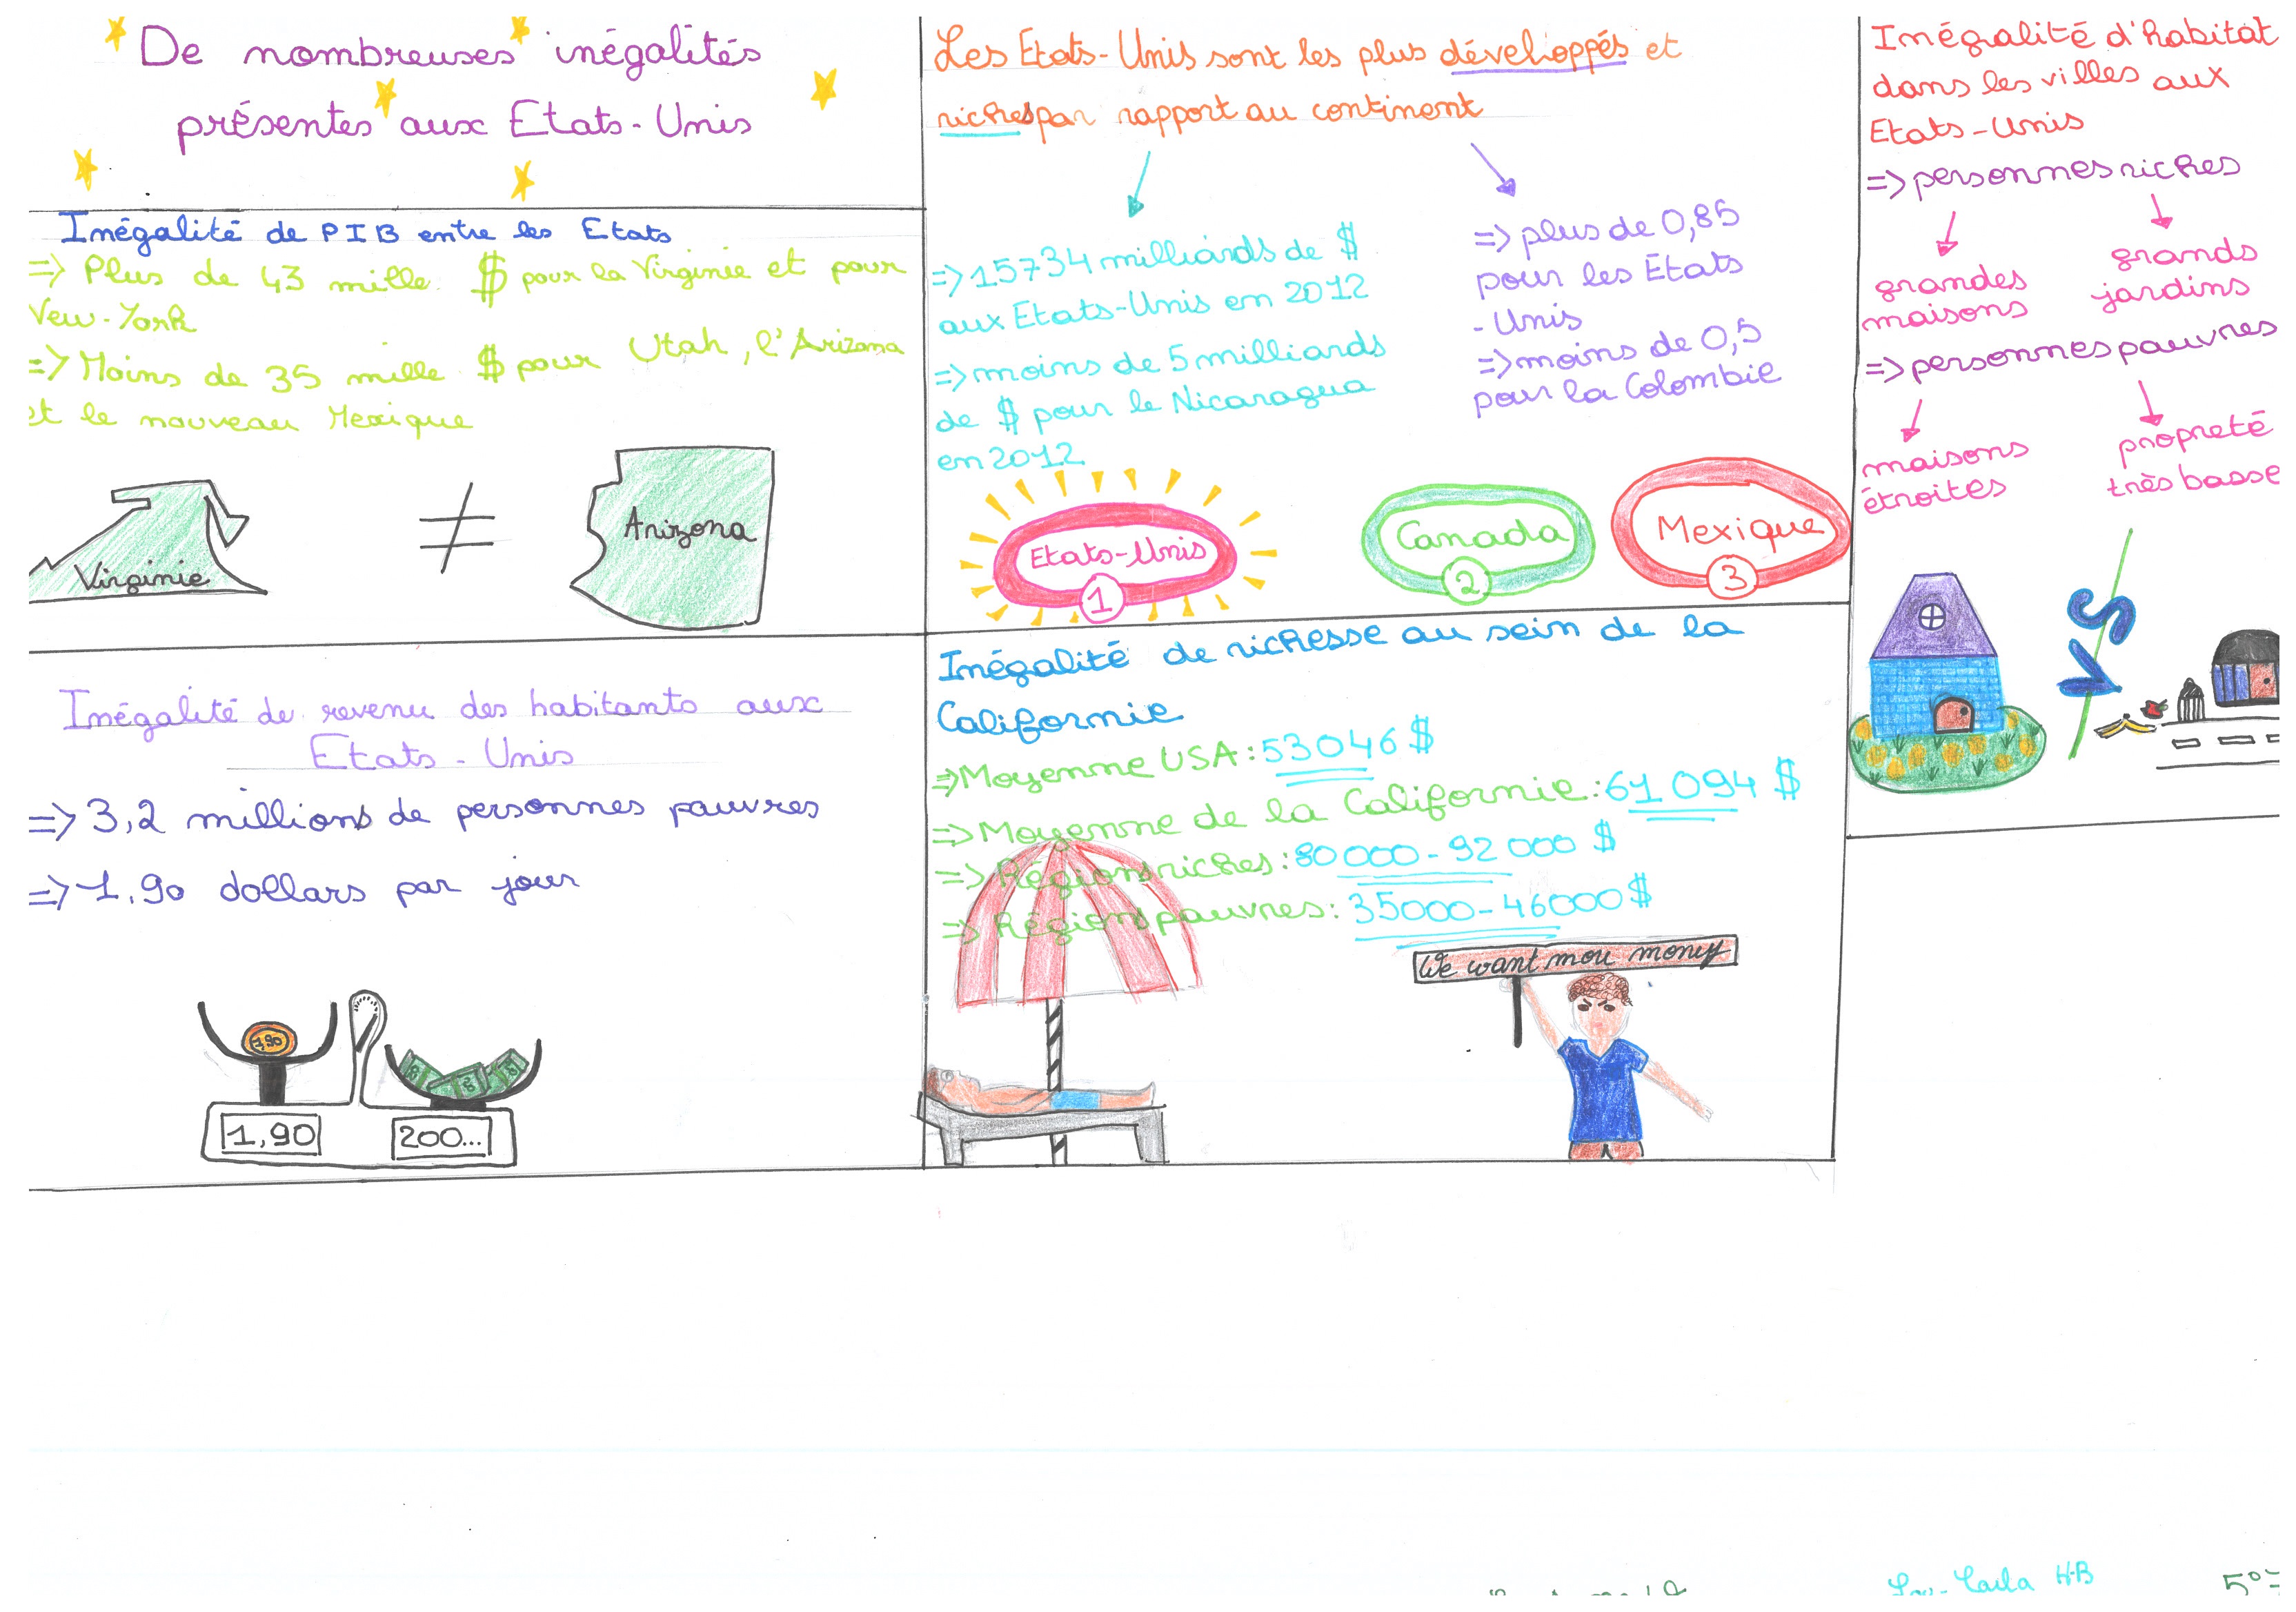 De nombreuses inégalités
présentes aux Etats-Unis
Inégalité de PIB entre les Etats
=> Plus de 43 mille $ pour la Virginie et pour
New-York
=> Moins de 35 mille $ pour Utah, l'Arizona
et le nouveau Mexique
Virginie
≠
Arizona
Inégalité de revenu des habitants aux
Etats-Unis
=> 3,2 millions de personnes pauvres
=> 1,90 dollars par jour
1,90
1,90
200...
Les Etats-Unis sont les plus développés et
riches par rapport au continent
=> 15734 milliards de $
aux Etats-Unis en 2012
=> moins de 5 milliards
de $ pour le Nicaragua
en 2012
=> plus de 0,85
pour les Etats
-Unis
=> moins de 0,5
pour la Colombie
Etats-Unis
1
Canada
2
Mexique
3
Inégalité de richesse au sein de la
Californie
=> Moyenne USA : 53046 $
=> Moyenne de la Californie : 61 094 $
=> Régions riches : 80000 - 92 000 $
=> Régions pauvres : 35000 - 46000 $
We want mou money
Inégalité d'habitat
dans les villes aux
Etats-Unis
=> personnes riches
grandes
maisons
grands
jardins
=> personnes pauvres
maisons
étroites
propreté
très basse
VS
Carla H-B